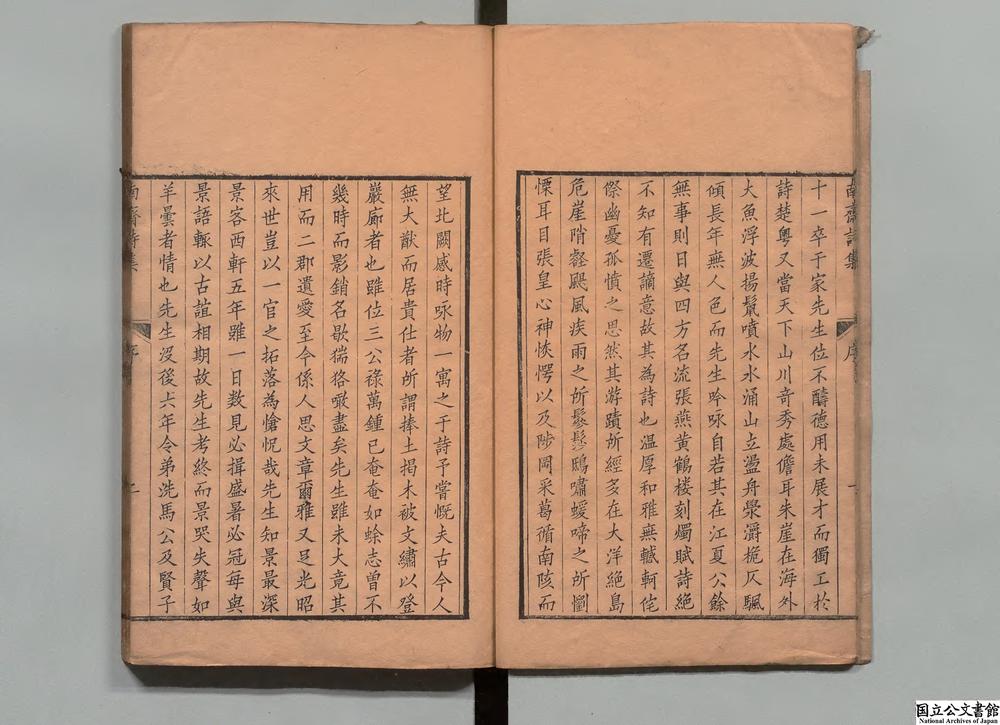 南齋詩集
序
十一卒于家先生位不醻德用未展才而獨工於
詩楚粵又當天下山川奇秀處儋耳朱崖在海外
大魚浮波揚鬣噴水水涌山立盪舟滎灂桅仄颿
傾長年無人色而先生吟咏自若其在江夏公餘
無事則日與四方名流張燕黃鶴樓刻燭賦詩絕
不知有遷謫意故其為詩也溫厚和雅無轗軻侘
傺幽憂孤憤之思然其游蹟所經多在大洋絕島
危崖陗壑颶風疾雨之所鬖髿鴟嘯蝯啼之所懰
慄耳目張皇心神恢愕以及陟岡采葛循南陔而
望北闕感時咏物一寓之于詩予嘗慨夫古今人
無大猷而居貴仕者所謂捧土揭木被文繡以登
巖廊者也雖位三公祿萬鍾已奄奄如蜍志曾不
幾時而影銷名歇猯狢噉盡矣先生雖未大竟其
用而二郡遺愛至今係人思文章爾雅又足光昭
來世豈以一官之拓落為愴怳哉先生知景最深
景客西軒五年雖一日數見必揖盛暑必冠每與
景語輒以古誼相期故先生考終而景哭失聲如
羊曇者情也先生沒後六年令弟洗馬公及賢子
南齋詩集
序
二